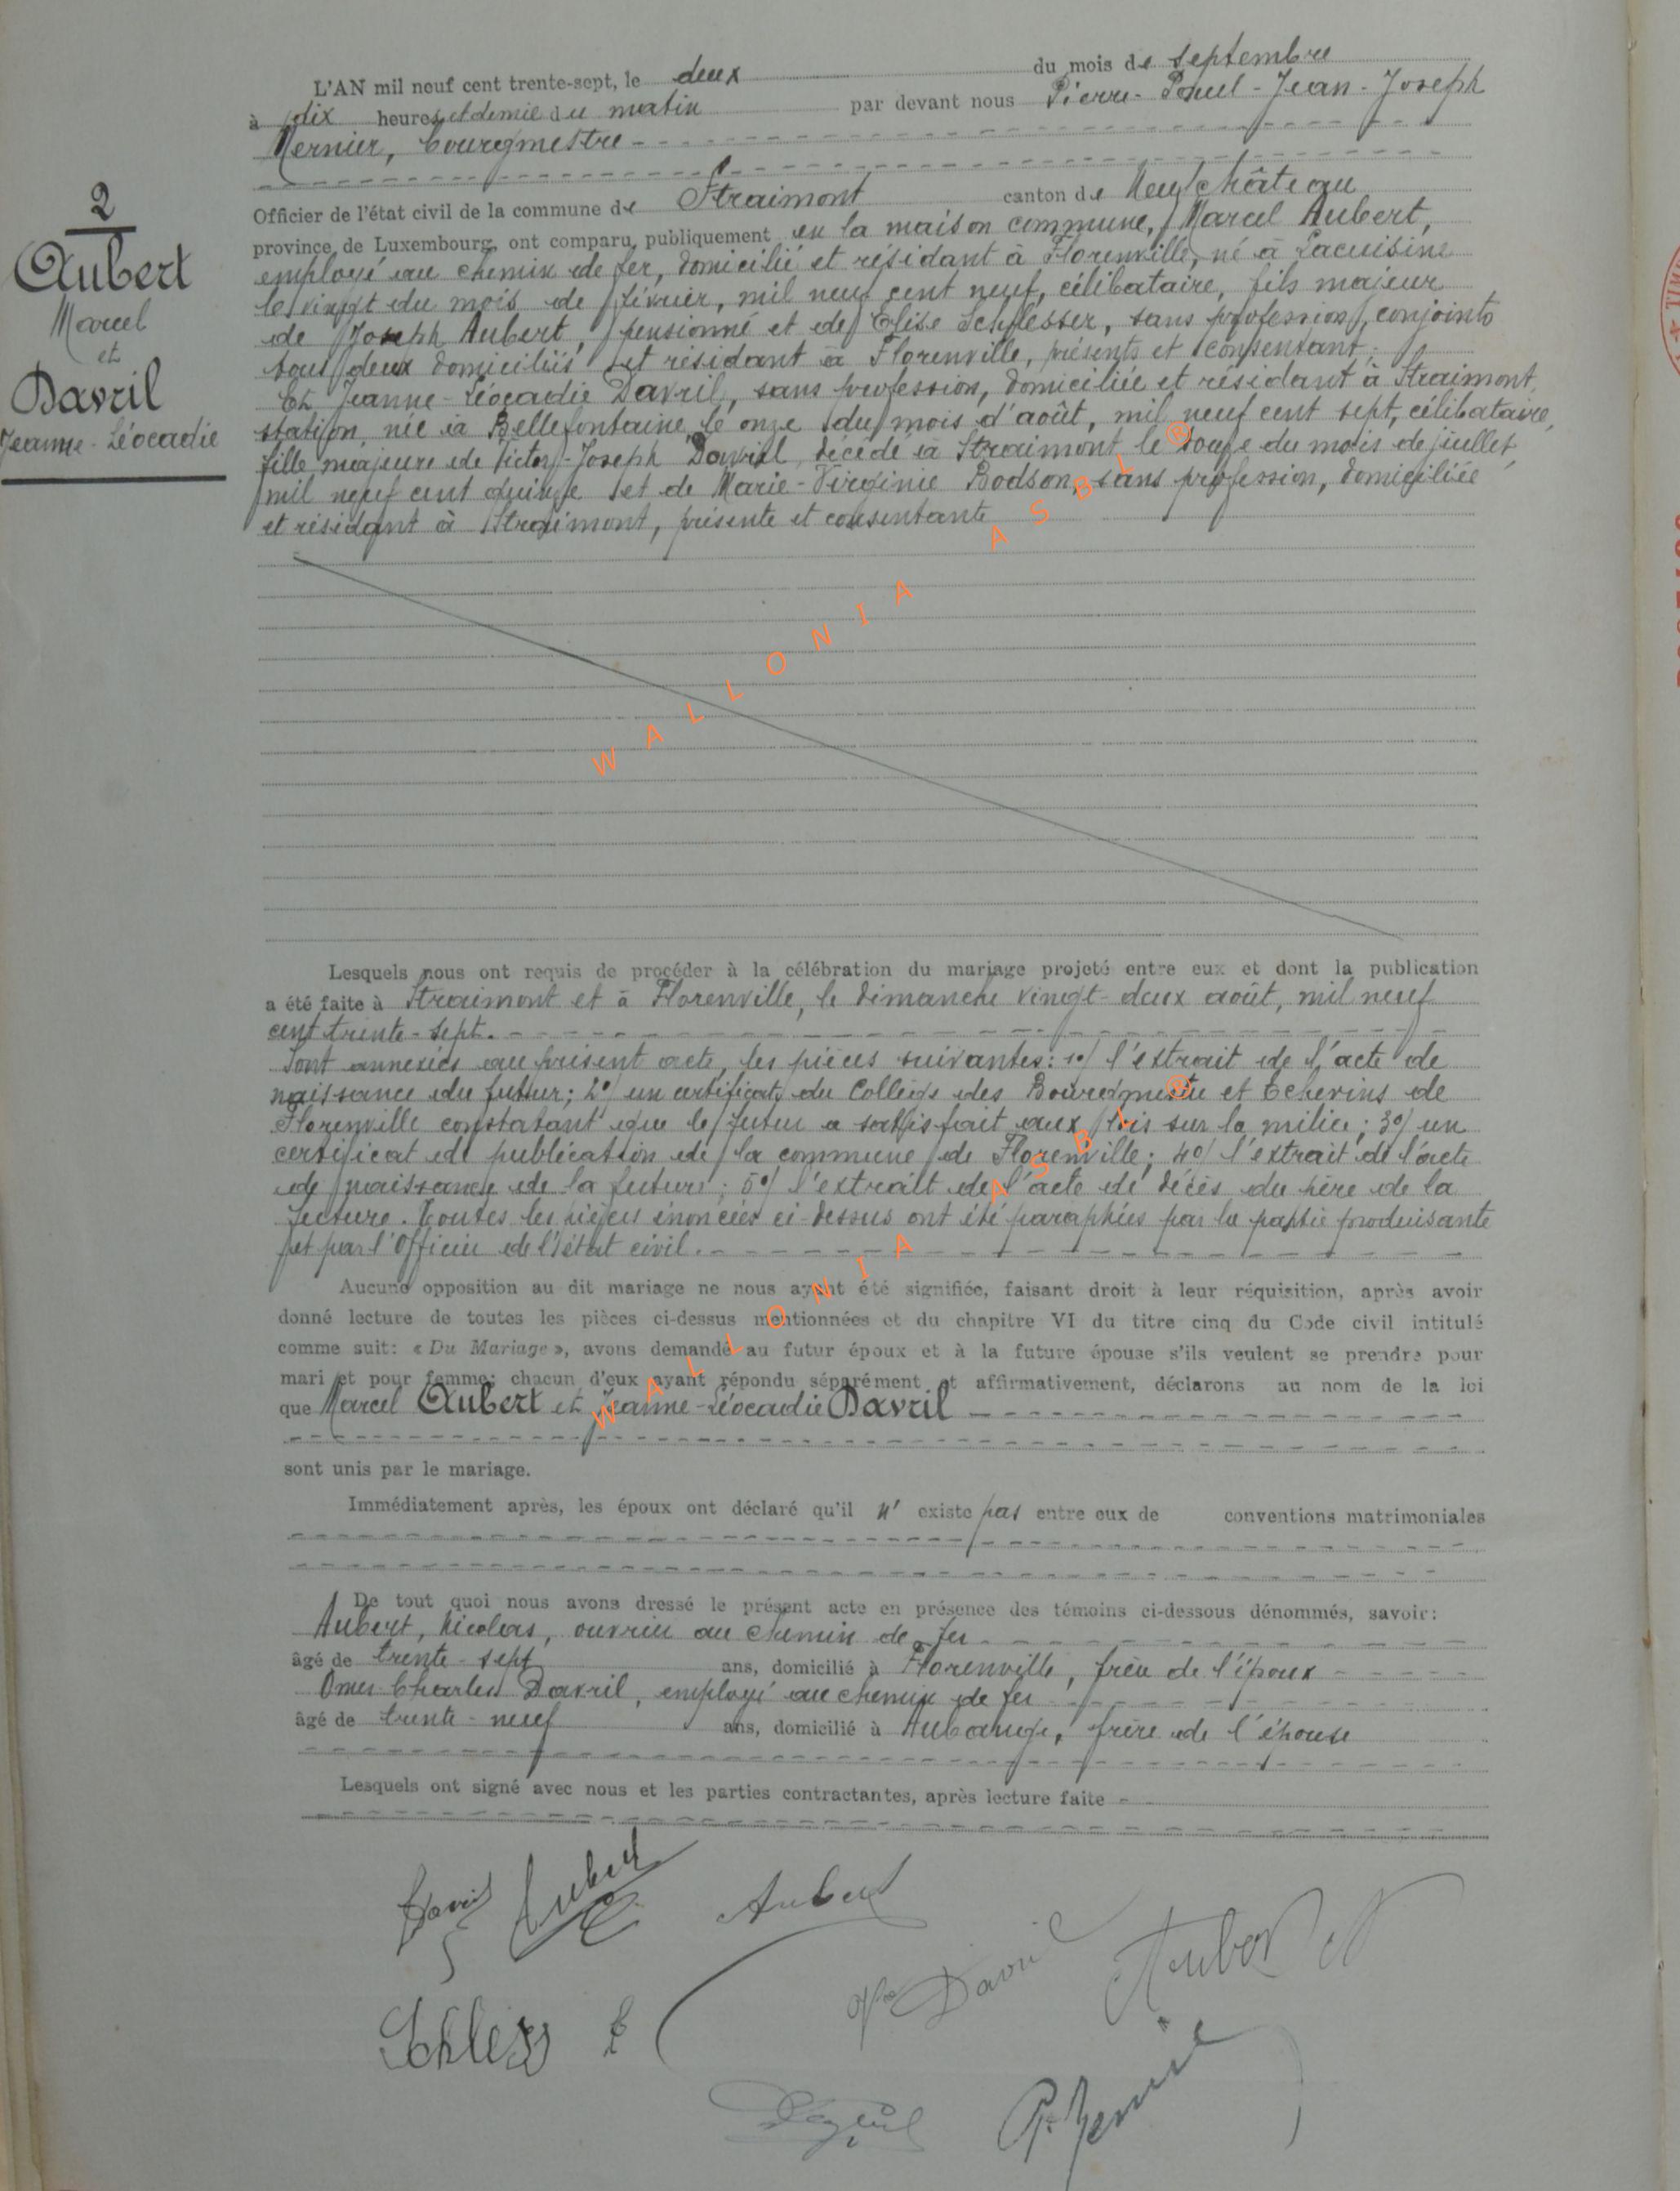 2
Aubert
Marcel
et
Davril
Jeanne-Léocadie
L'AN mil neuf cent trente-sept, le deux du mois de septembre
à dix heures et demie du matin par devant nous Pierre-Paul-Jean-Joseph
Mernier, bourgmestre
Officier de l'état civil de la commune de Straimont canton de Neufchâteau
province de Luxembourg, ont comparu publiquement en la maison commune, Marcel Aubert,
employé au chemin de fer, domicilié et résidant à Florenville, né à Lacuisine
le vingt du mois de février, mil neuf cent neuf, célibataire, fils majeur
de Joseph Aubert, pensionné et de Elise Schlesser, sans profession, conjoints
tous deux domiciliés et résidant à Florenville, présents et consentant;
Et Jeanne-Léocadie Davril, sans profession, domiciliée et résidant à Straimont,
station, née à Bellefontaine le onze du mois d'août, mil neuf cent sept, célibataire,
fille majeure de Victor-Joseph Davril, décédé à Straimont le douze du mois de juillet,
mil neuf cent quinze et de Marie-Virginie Bodson, sans profession, domiciliée
et résidant à Straimont, présente et consentante
WALLONIA ASBL ®
Lesquels nous ont requis de procéder à la célébration du mariage projeté entre eux et dont la publication
a été faite à Straimont et à Florenville, le dimanche vingt-deux août, mil neuf
cent trente-sept.
Sont annexées au présent acte, les pièces suivantes: 1°/ l'extrait de l'acte de
naissance du futur; 2°/ un certificat du Collège des Bourgmestre et Echevins de
Florenville constatant que le futur a satisfait aux lois sur la milice; 3°/ un
certificat de publication de la commune de Florenville; 4°/ l'extrait de l'acte
de naissance de la future; 5°/ l'extrait de l'acte de décès du père de la
future. Toutes les pièces énoncées ci-dessus ont été paraphées par la partie produisante
et par l'Officier de l'état civil.
WALLONIA ASBL ®
Aucune opposition au dit mariage ne nous ayant été signifiée, faisant droit à leur réquisition, après avoir
donné lecture de toutes les pièces ci-dessus mentionnées et du chapitre VI du titre cinq du Code civil intitulé
comme suit: « Du Mariage », avons demandé au futur époux et à la future épouse s'ils veulent se prendre pour
mari et pour femme; chacun d'eux ayant répondu séparément et affirmativement, déclarons au nom de la loi
que Marcel Aubert et Jeanne-Léocadie Davril
sont unis par le mariage.
Immédiatement après, les époux ont déclaré qu'il n'existe pas entre eux de conventions matrimoniales
De tout quoi nous avons dressé le présent acte en présence des témoins ci-dessous dénommés, savoir:
Aubert, Nicolas, ouvrier au chemin de fer
âgé de trente-sept ans, domicilié à Florenville, frère de l'époux
Omer Charles Davril, employé au chemin de fer
âgé de trente-neuf ans, domicilié à Aubange, frère de l'épouse
Lesquels ont signé avec nous et les parties contractantes, après lecture faite
Davril Aubert Aubert
Davril Aubert